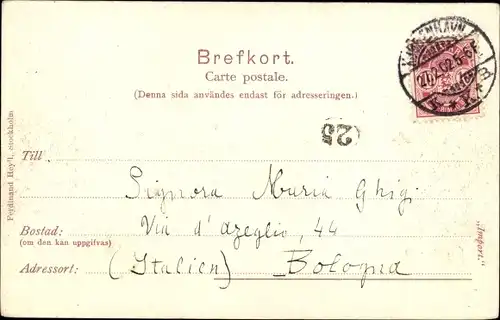 Brefkort.
Carte postale.
(Denna sida användes endast för adresseringen.)
25
Till
Signora Maria Ghigi
Bostad: Via d'Azeglio, 44
(om den kan uppgifvas)
Adressort: (Italien) Bologna
Ferdinand Hey'l, Stockholm
"Import."